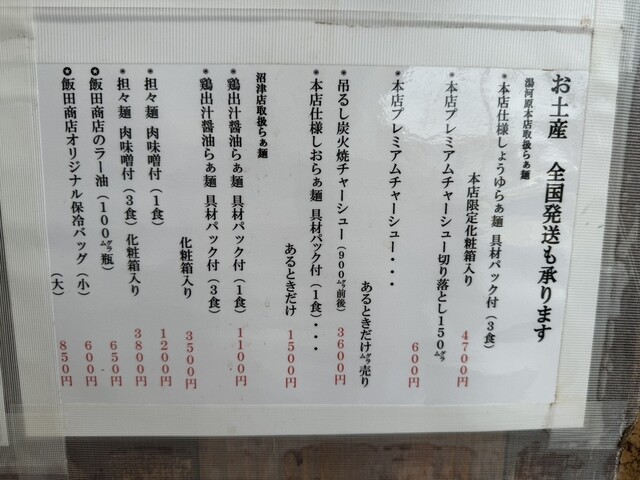 お土産　全国発送も承ります
湯河原本店取扱らぁ麺
＊本店仕様しょうゆらぁ麺 具材パック付（3食）
本店限定化粧箱入り　4700円
＊本店プレミアムチャーシュー切り落とし150㌘
600円
＊本店プレミアムチャーシュー・・・
あるときだけ㌘売り
＊吊るし炭火焼チャーシュー（900㌘前後）　3600円
＊本店仕様しおらぁ麺 具材パック付（1食）・・・
あるときだけ　1500円
沼津店取扱らぁ麺
＊鶏出汁醬油らぁ麺 具材パック付（1食）　1100円
＊鶏出汁醬油らぁ麺 具材パック付（3食）
化粧箱入り　3500円
＊担々麺 肉味噌付（1食）　1200円
＊担々麺 肉味噌付（3食）化粧箱入り　3800円
✪飯田商店のラー油（100㌘瓶）　650円
✪飯田商店オリジナル保冷バッグ（小）　600円
（大）　850円